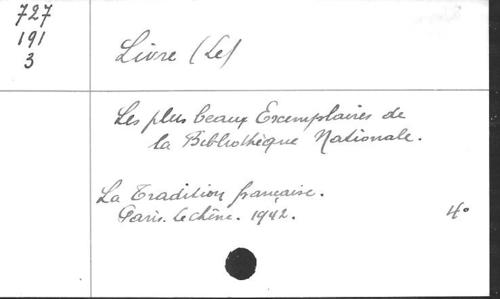 727
191
3
Livre (Le)
Les plus beaux Exemplaires de
la Bibliothèque Nationale.
La Tradition française.
Paris. Le chêne. 1942.
4°